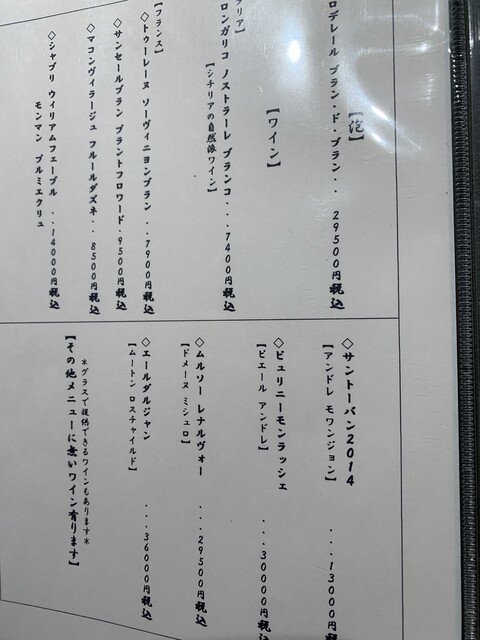 【泡】
ロデレール ブラン・ド・ブラン... 29500円税込
【ワイン】
リア】
ロンガリコ ノストラーレ ブランコ...7400円税込
【シチリアの自然派ワイン】
【フランス】
◇トゥーレーヌ ソーヴィニヨンブラン...7900円税込
◇サンセールブラン ブラントフロワード..9500円税込
◇マコンヴィラージュ フルールダズネ..8500円税込
◇シャブリ ウィリアムフェーブル ..14000円税込
モンマン プルミエクリュ
◇サントーバン2014
【アンドレ モワンジョン】 ...13000円税
◇ピュリニーモンラッシェ
【ピエール アンドレ】 ...30000円税込
◇ムルソー レナルヴォー
【ドメーヌ ミシュロ】 ...29500円税込
◇エールダルジャン
【ムートン ロスチャイルド】 ...36000円税込
*グラスで提供できるワインもあります*
【その他メニューに無いワイン有ります】